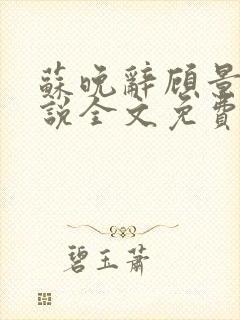 蘇晚辭顾景
說全文免費
碧玉蕭